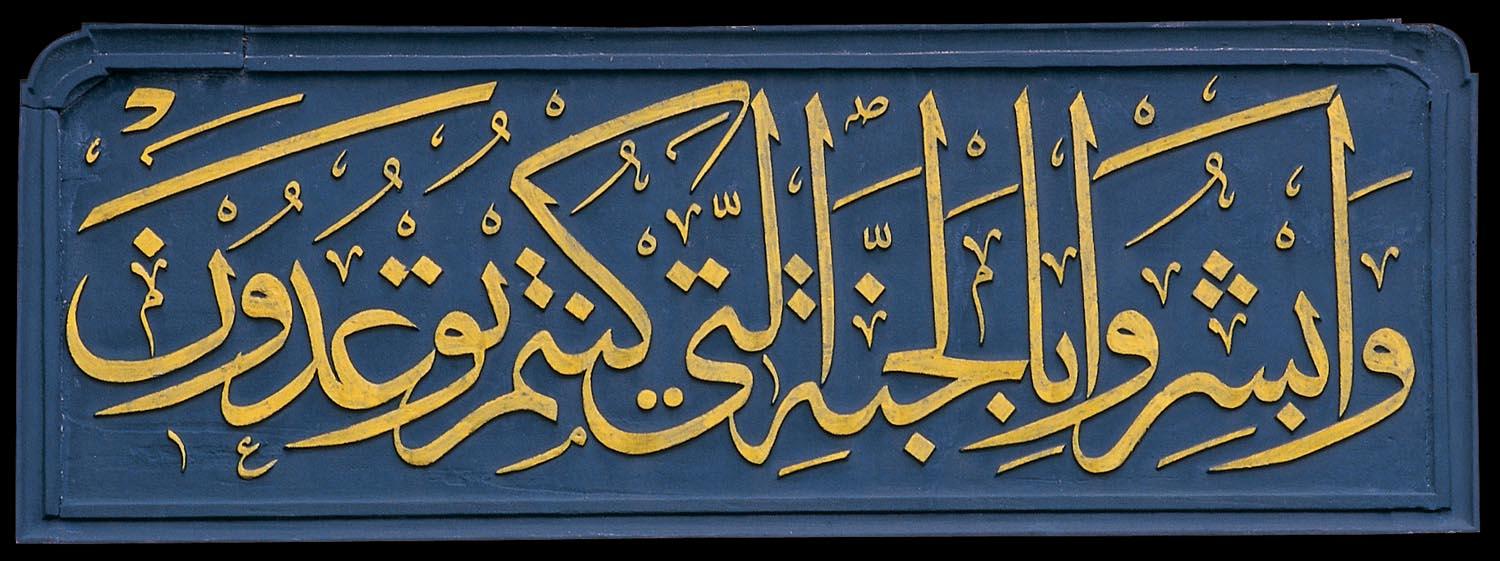 وَأَبْشِرُوا بِالْجَنَّةِ الَّتِي كُنْتُمْ تُوعَدُونَ